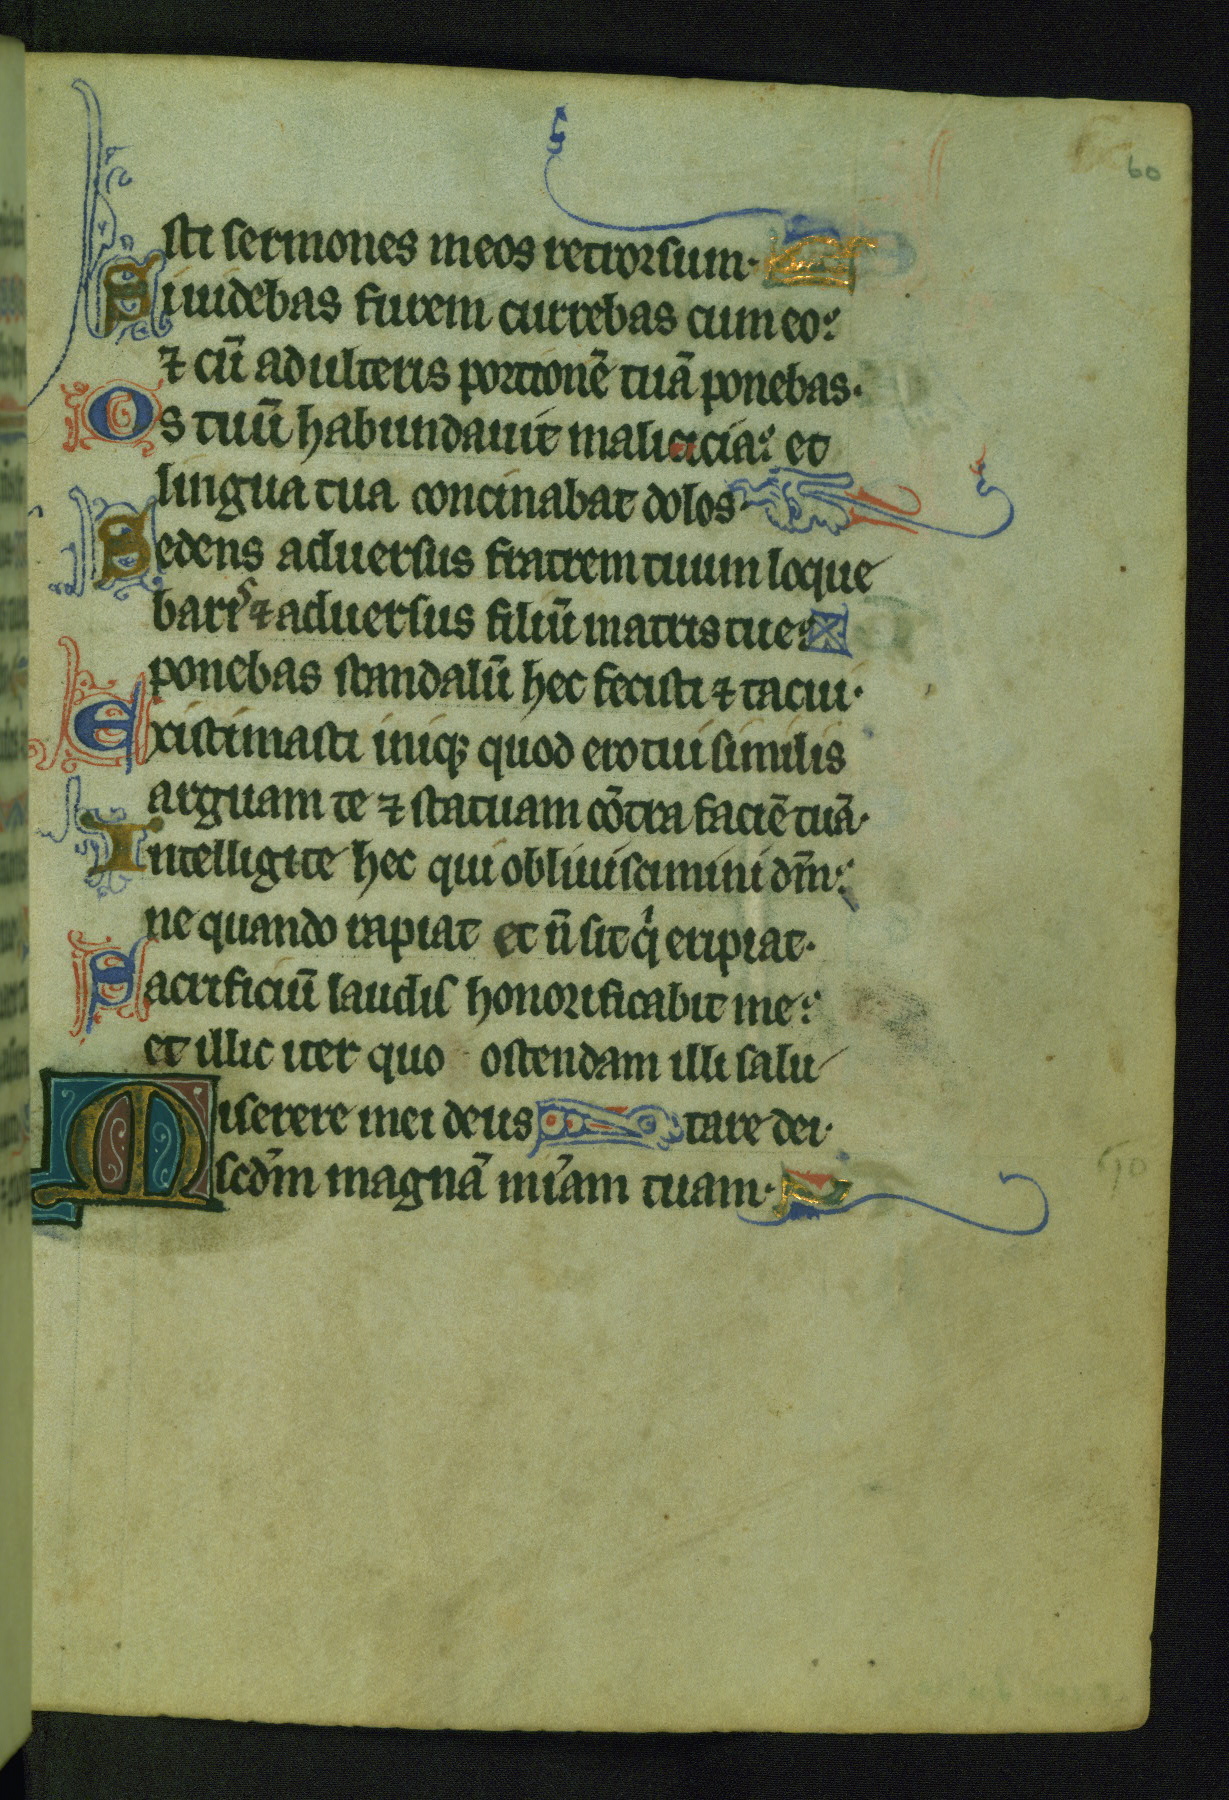 60
sti sermones meos retrorsum·
Si uidebas furem currebas cum eo:
⁊ cū adulteris portionē tuā ponebas·
Os tuū habundauit maliticia: et
lingua tua concinabat dolos·
Sedens aduersus fratrem tuum loque
baris ⁊ aduersus filiū matris tue:
ponebas scandalū hec fecisti ⁊ tacui·
Existimasti iniq; quod ero tui similis
arguam te ⁊ statuam cōtra faciē tuā·
Intelligite hec qui obliuiscimini dm̄:
ne quando rapiat et n̄ sit qi eripiat·
Sacrificiū laudis honorificabit me:
et illic iter quo ostendam illi salu
Miserere mei deus tare dei·
scdm̄ magnā mīam tuam·